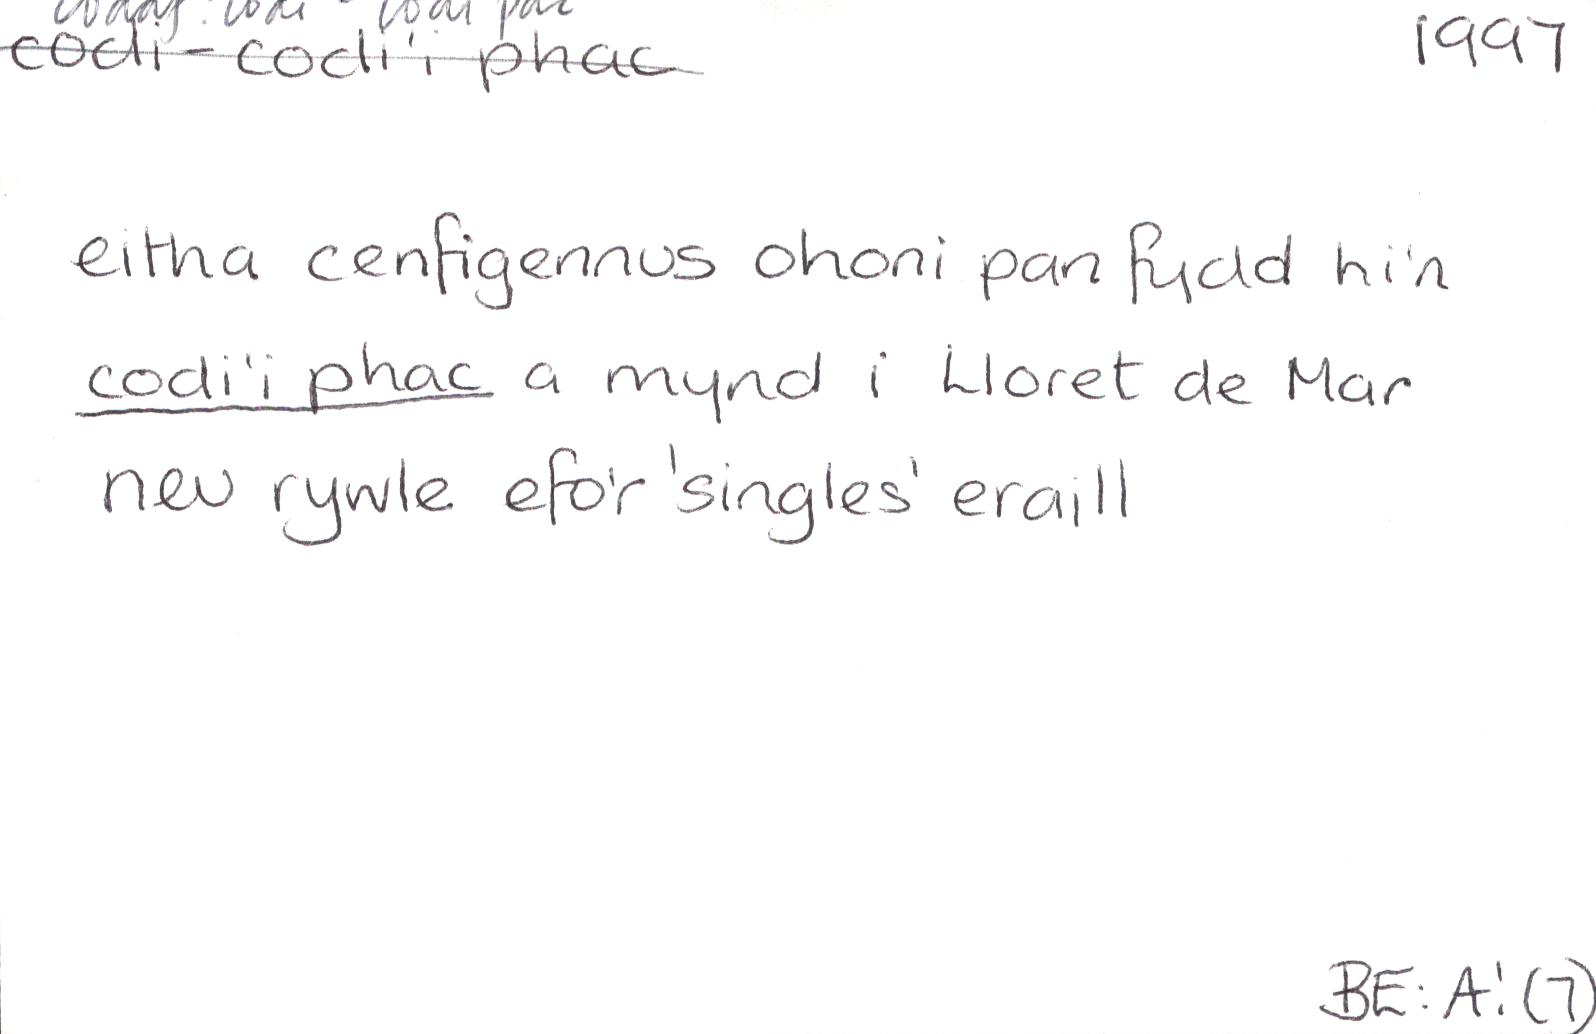 codi - codi'i phac
1997
eitha cenfigennus ohoni pan fydd hi'n
codi'i phac a mynd i Lloret de Mar
neu rywle efo'r 'singles' eraill
BE: A! (7)